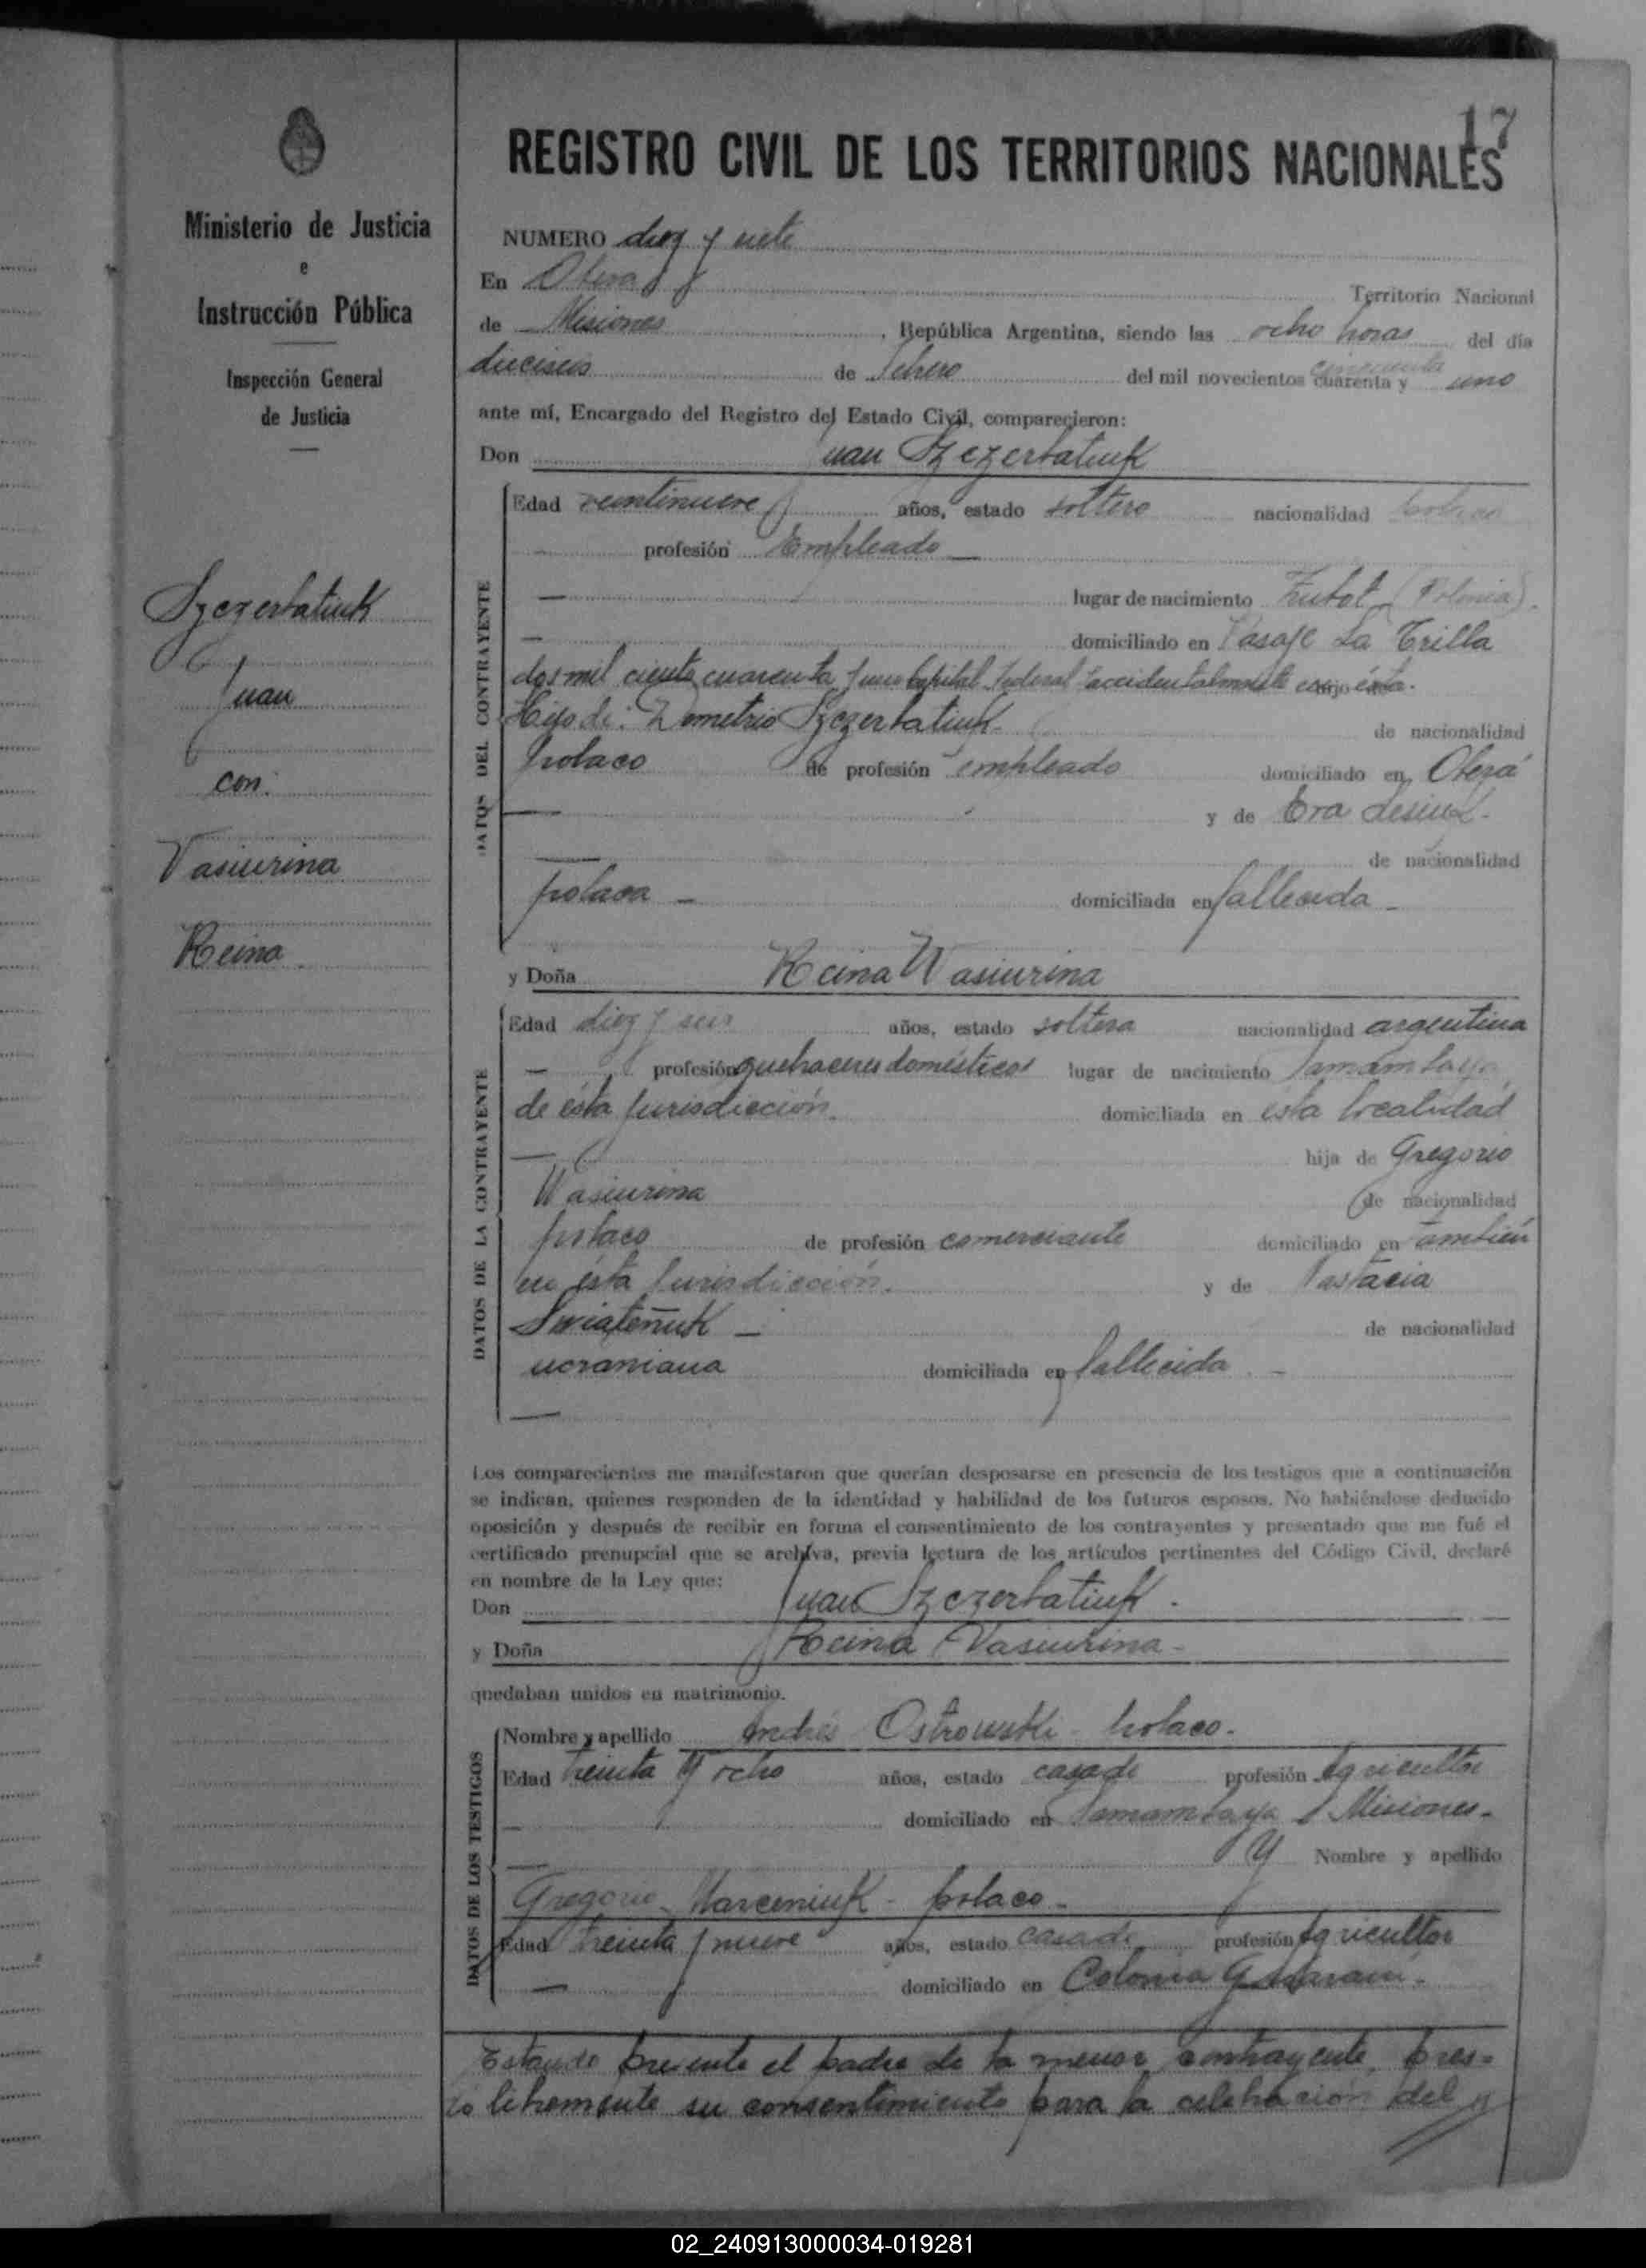 17
REGISTRO CIVIL DE LOS TERRITORIOS NACIONALES
Ministerio de Justicia
e
Instrucción Pública
Inspección General
de Justicia
Szczerbatiuk
Juan
con:
Vasiurina
Reina
NUMERO diez y siete
En Oberá Territorio Nacional
de Misiones, República Argentina, siendo las ocho horas del día
dieciseis de Febrero del mil novecientos cuarenta y cincuenta uno
ante mí, Encargado del Registro del Estado Civil, comparecieron:
Don Juan Szczerbatiuk
DATOS DEL CONTRAYENTE
Edad veintinueve años, estado soltero nacionalidad polaco
— profesión Empleado —
— lugar de nacimiento (Polonia).
— domiciliado en Pasaje La Trilla
dos mil ciento cuarenta y uno Capital Federal accidentalmente en ésta.
Hijo de: Demetrio Szczerbatiuk de nacionalidad
polaco de profesión empleado domiciliado en Oberá
— y de Eva Lesiuk.
— de nacionalidad
polaca — domiciliada en fallecida —
y Doña Reina Wasiurina
DATOS DE LA CONTRAYENTE
Edad diez y seis años, estado soltera nacionalidad argentina
— profesión quehaceres domésticos lugar de nacimiento Samambaya
de ésta Jurisdicción. domiciliada en esta localidad
— hija de Gregorio
Wasiurina de nacionalidad
polaco de profesión comerciante domiciliado en también
en ésta Jurisdicción. y de Nastacia
— de nacionalidad
ucraniana domiciliada en fallecida. —
—
Los comparecientes me manifestaron que querían desposarse en presencia de los testigos que a continuación
se indican, quienes responden de la identidad y habilidad de los futuros esposos. No habiéndose deducido
oposición y después de recibir en forma el consentimiento de los contrayentes y presentado que me fué el
certificado prenupcial que se archiva, previa lectura de los artículos pertinentes del Código Civil, declaré
en nombre de la Ley que:
Don Juan Szczerbatiuk.
y Doña Reina Vasiurina —
quedaban unidos en matrimonio.
DATOS DE LOS TESTIGOS
Nombre y apellido Andrés Ostrowski - polaco.
Edad treinta y ocho años, estado casado profesión Agricultor
— domiciliado en Samambaya Misiones.
— Y Nombre y apellido
Gregorio Marceniuk - polaco —
Edad treinta y nueve años, estado casado profesión Agricultor
— domiciliado en Colonia Guaraní.
Estando presente el padre de la menor contrayente, pres-
tó libremente su consentimiento para la celebración del
02_240913000034-019281